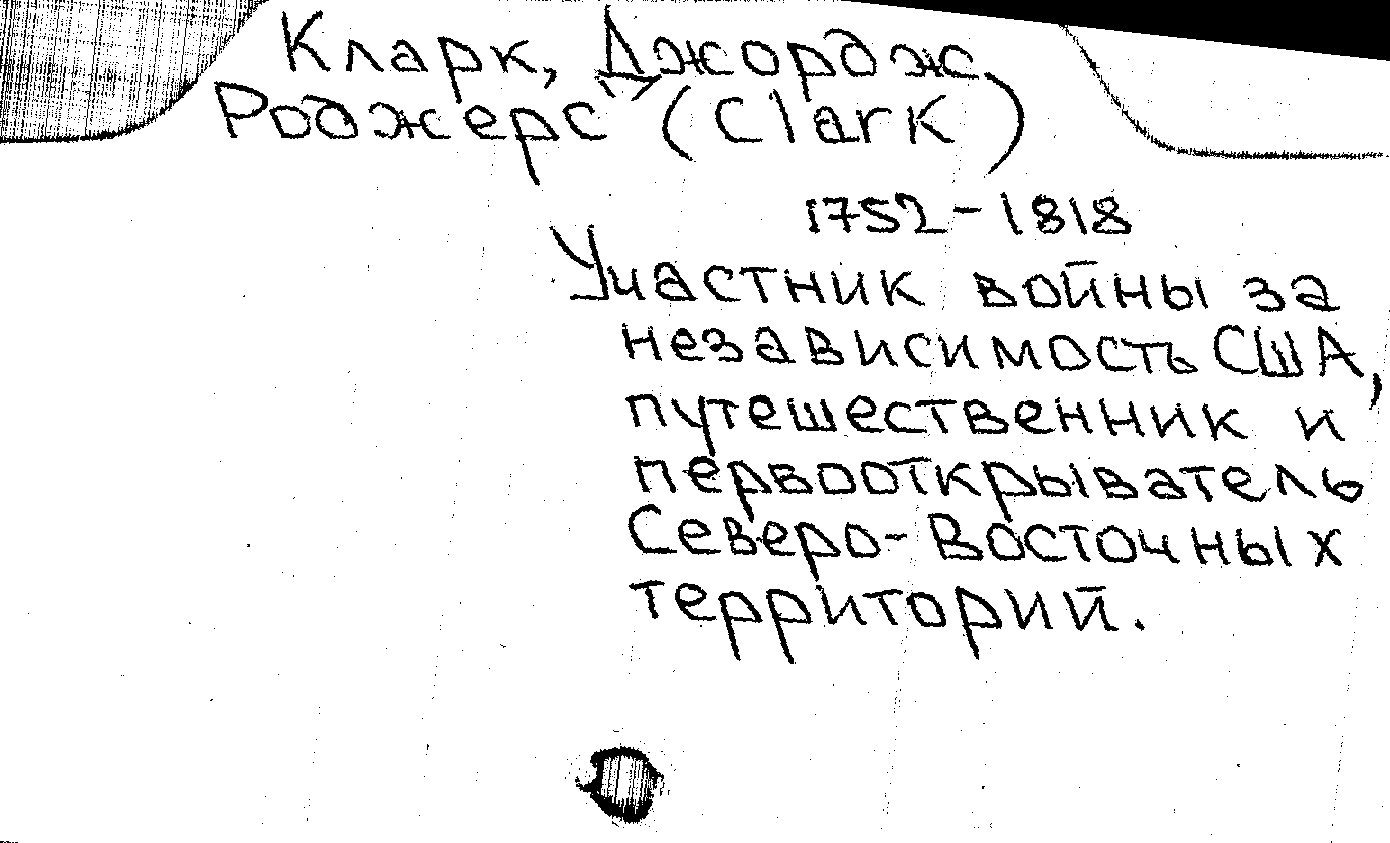 Кларк, Джордж
Роджерс (Clark)
1752-1818
Участник войны за
независимость США,
путешественник и
первооткрыватель
Северо-Восточных
территорий.